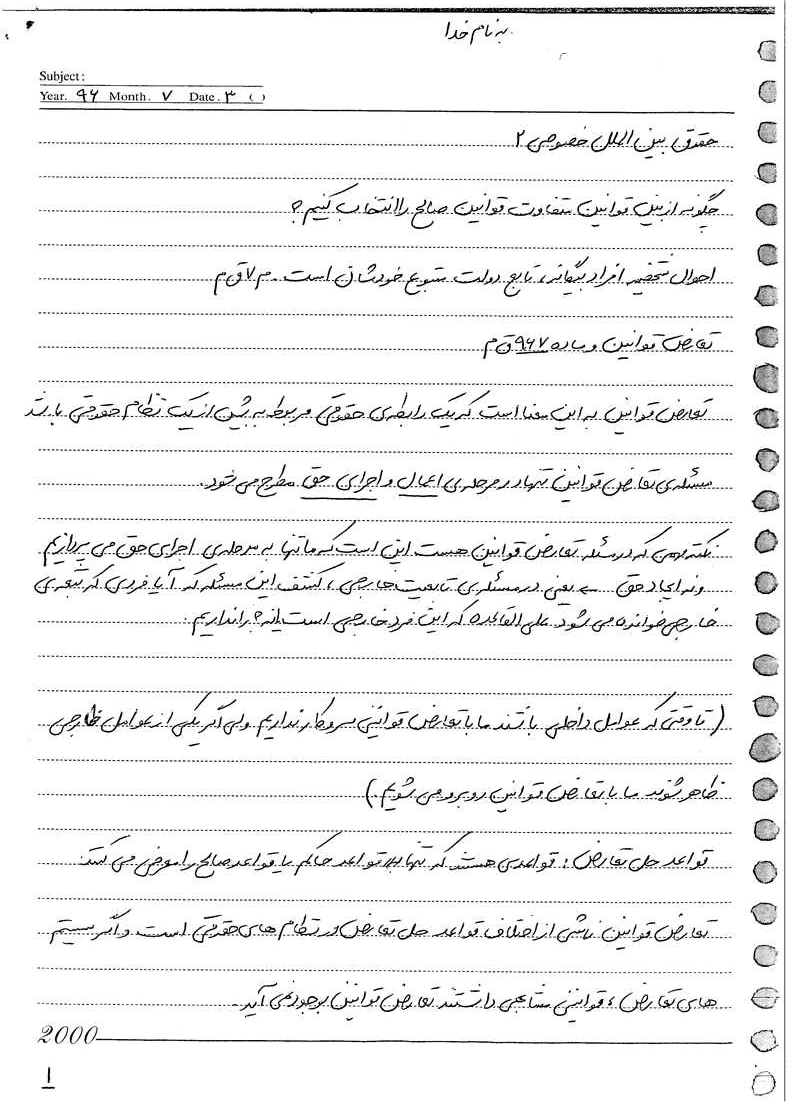 به نام خدا
Subject:
Year. ۹۶ Month. ۷ Date. ۳ ( )
حقوق بین الملل خصوصی ۲
چگونه از بین قوانین متفاوت قوانین صالح را انتخاب کنیم؟
احوال شخصیه افراد بیگانه، تابع دولت متبوع خودشان است. م ۷ ق م
تعارض قوانین و ماده ۹۶۷ ق م
تعارض قوانین به این معنا است که یک رابطه‌ی حقوقی مربوط به بیش از یک نظام حقوقی باشد
مسئله‌ی تعارض قوانین تنها در مرحله‌ی اعمال و اجرای حق مطرح می شود.
نکته مهمی که در مسئله تعارض قوانین هست این است که ما تنها به مرحله‌ی اجرای حق می پردازیم
و نه ایجاد حق ← یعنی در مسئله‌ی تابعیت خارجی، کشف این مسئله که آیا فردی که تبعه‌ی
خارجی خوانده می شود علی القاعده که این فرد خارجی است یا نه؟ را نداریم.
(تا وقتی که عوامل داخلی باشند ما با تعارض قوانین سروکار نداریم ولی اگر یکی از عوامل خارجی
ظاهر شوند ما با تعارض قوانین روبرو می شویم.)
قواعد حل تعارض: قواعدی هستند که تنها قواعد حاکم یا قواعد صالح را معرفی می کنند.
تعارض قوانین ناشی از اختلاف قواعد حل تعارض در نظام های حقوقی است و اگر سیستم
های تعارض، قوانین مشابهی داشتند تعارض قوانین بوجود نمی آید.
2000
۱